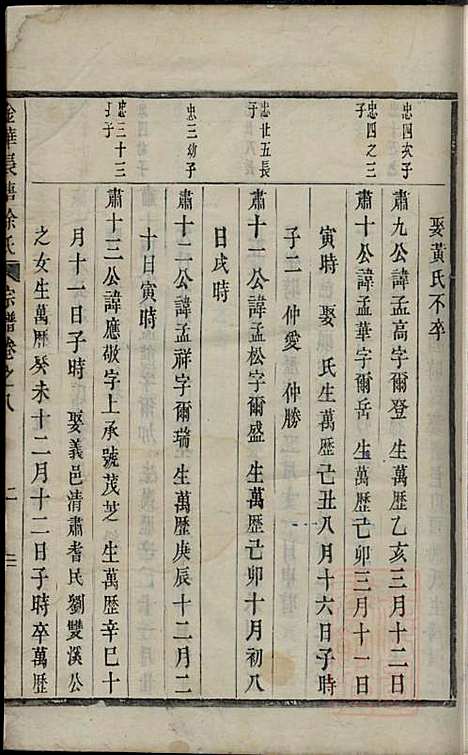 娶黃氏不卒
忠四次子
肅九公諱孟高字爾登 生萬歷乙亥三月十二日
忠四之三子
肅十公諱孟華字爾岳 生萬歷己卯三月十一日
寅時 娶 氏生萬歷己丑八月十六日子時
子二 仲愛 仲勝
忠廿五長子
肅十一公諱孟松字爾盛 生萬歷己卯十月初八
日戌時
忠三幼子
肅十二公諱孟祥字爾瑞 生萬歷庚辰十二月二
十日寅時
忠三十三長子
肅十三公諱應敬字上承號茂芝 生萬歷辛巳十
月十一日子時 娶義邑清肅耆民劉雙溪公
之女生萬歷癸未十二月十二日子時卒萬歷
金華長塘徐氏宗譜卷之八